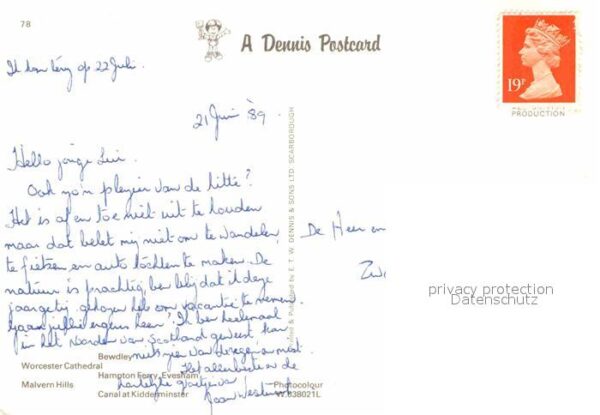 78
A Dennis Postcard
Ik kom terug op 22 Juli.
19P
PRODUCTION
21 Juni '89
Hello jonge
Ook zo'n plezier van de hitte?
Het is af en toe niet uit te houden
maar dat belet mij niet om te wandelen
te fietsen en auto tochten te maken. De
natuur is prachtig, ben blij dat ik deze
jaargetij gekozen heb om vacantie te nemen
gaan jullie ergens heen? Ik ben helemaal
in het Noorden van Scotland geweest, kan
niets zien van regen mist
Het allerbeste en de
hartelijke groetjes van
De Heer en
Zw
privacy protection
Datenschutz
Printed & Published by E. T. W. DENNIS & SONS LTD. SCARBOROUGH
Bewdley
Worcester Cathedral
Hampton Ferry, Evesham
Malvern Hills
Canal at Kidderminster
Photocolour
W.038021L